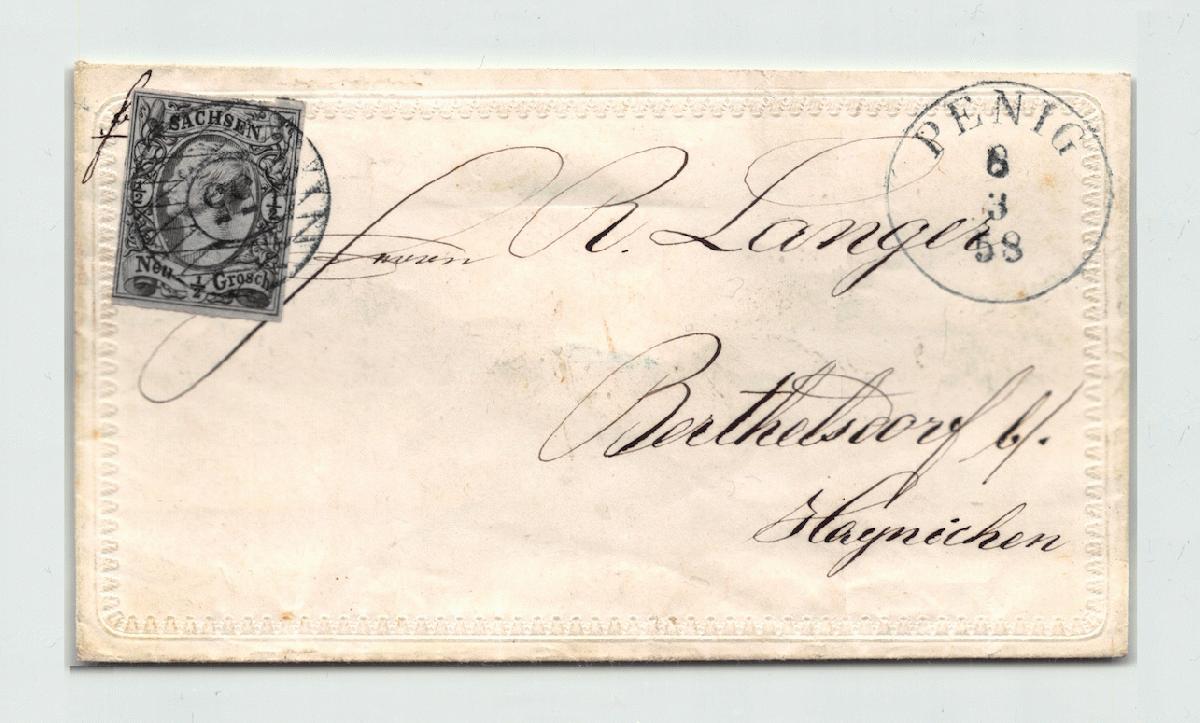 SACHSEN
½ ½
Neu ½ Grosch
PENIG
8
3
58
Herrn R. Langer
Berthelsdorf b/.
Haynichen